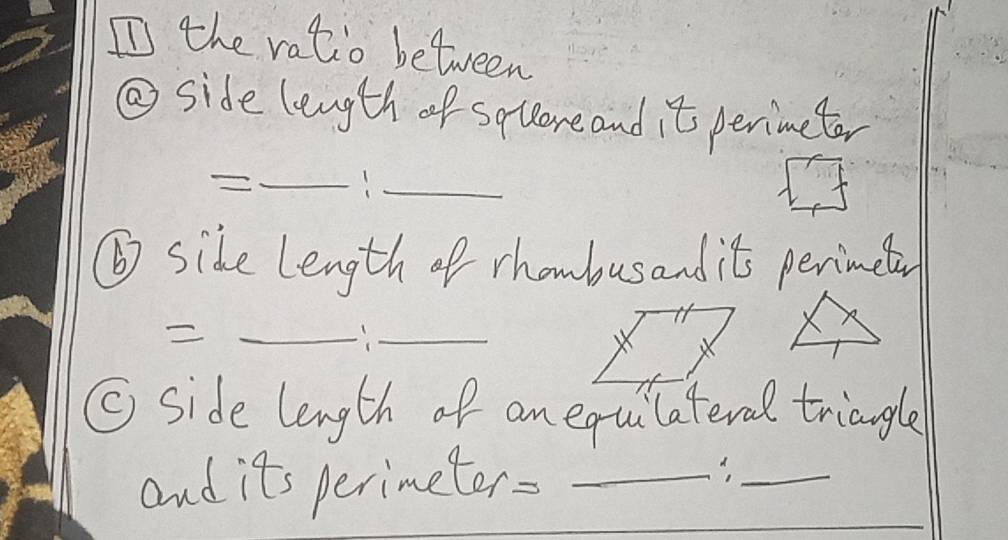 1 the ratio between
a side length of square and its perimeter
= ___ : ___
b side length of rhombus and its perimeter
= ___ : ___
c side length of an equilateral triangle
and its perimeter = ___ : ___